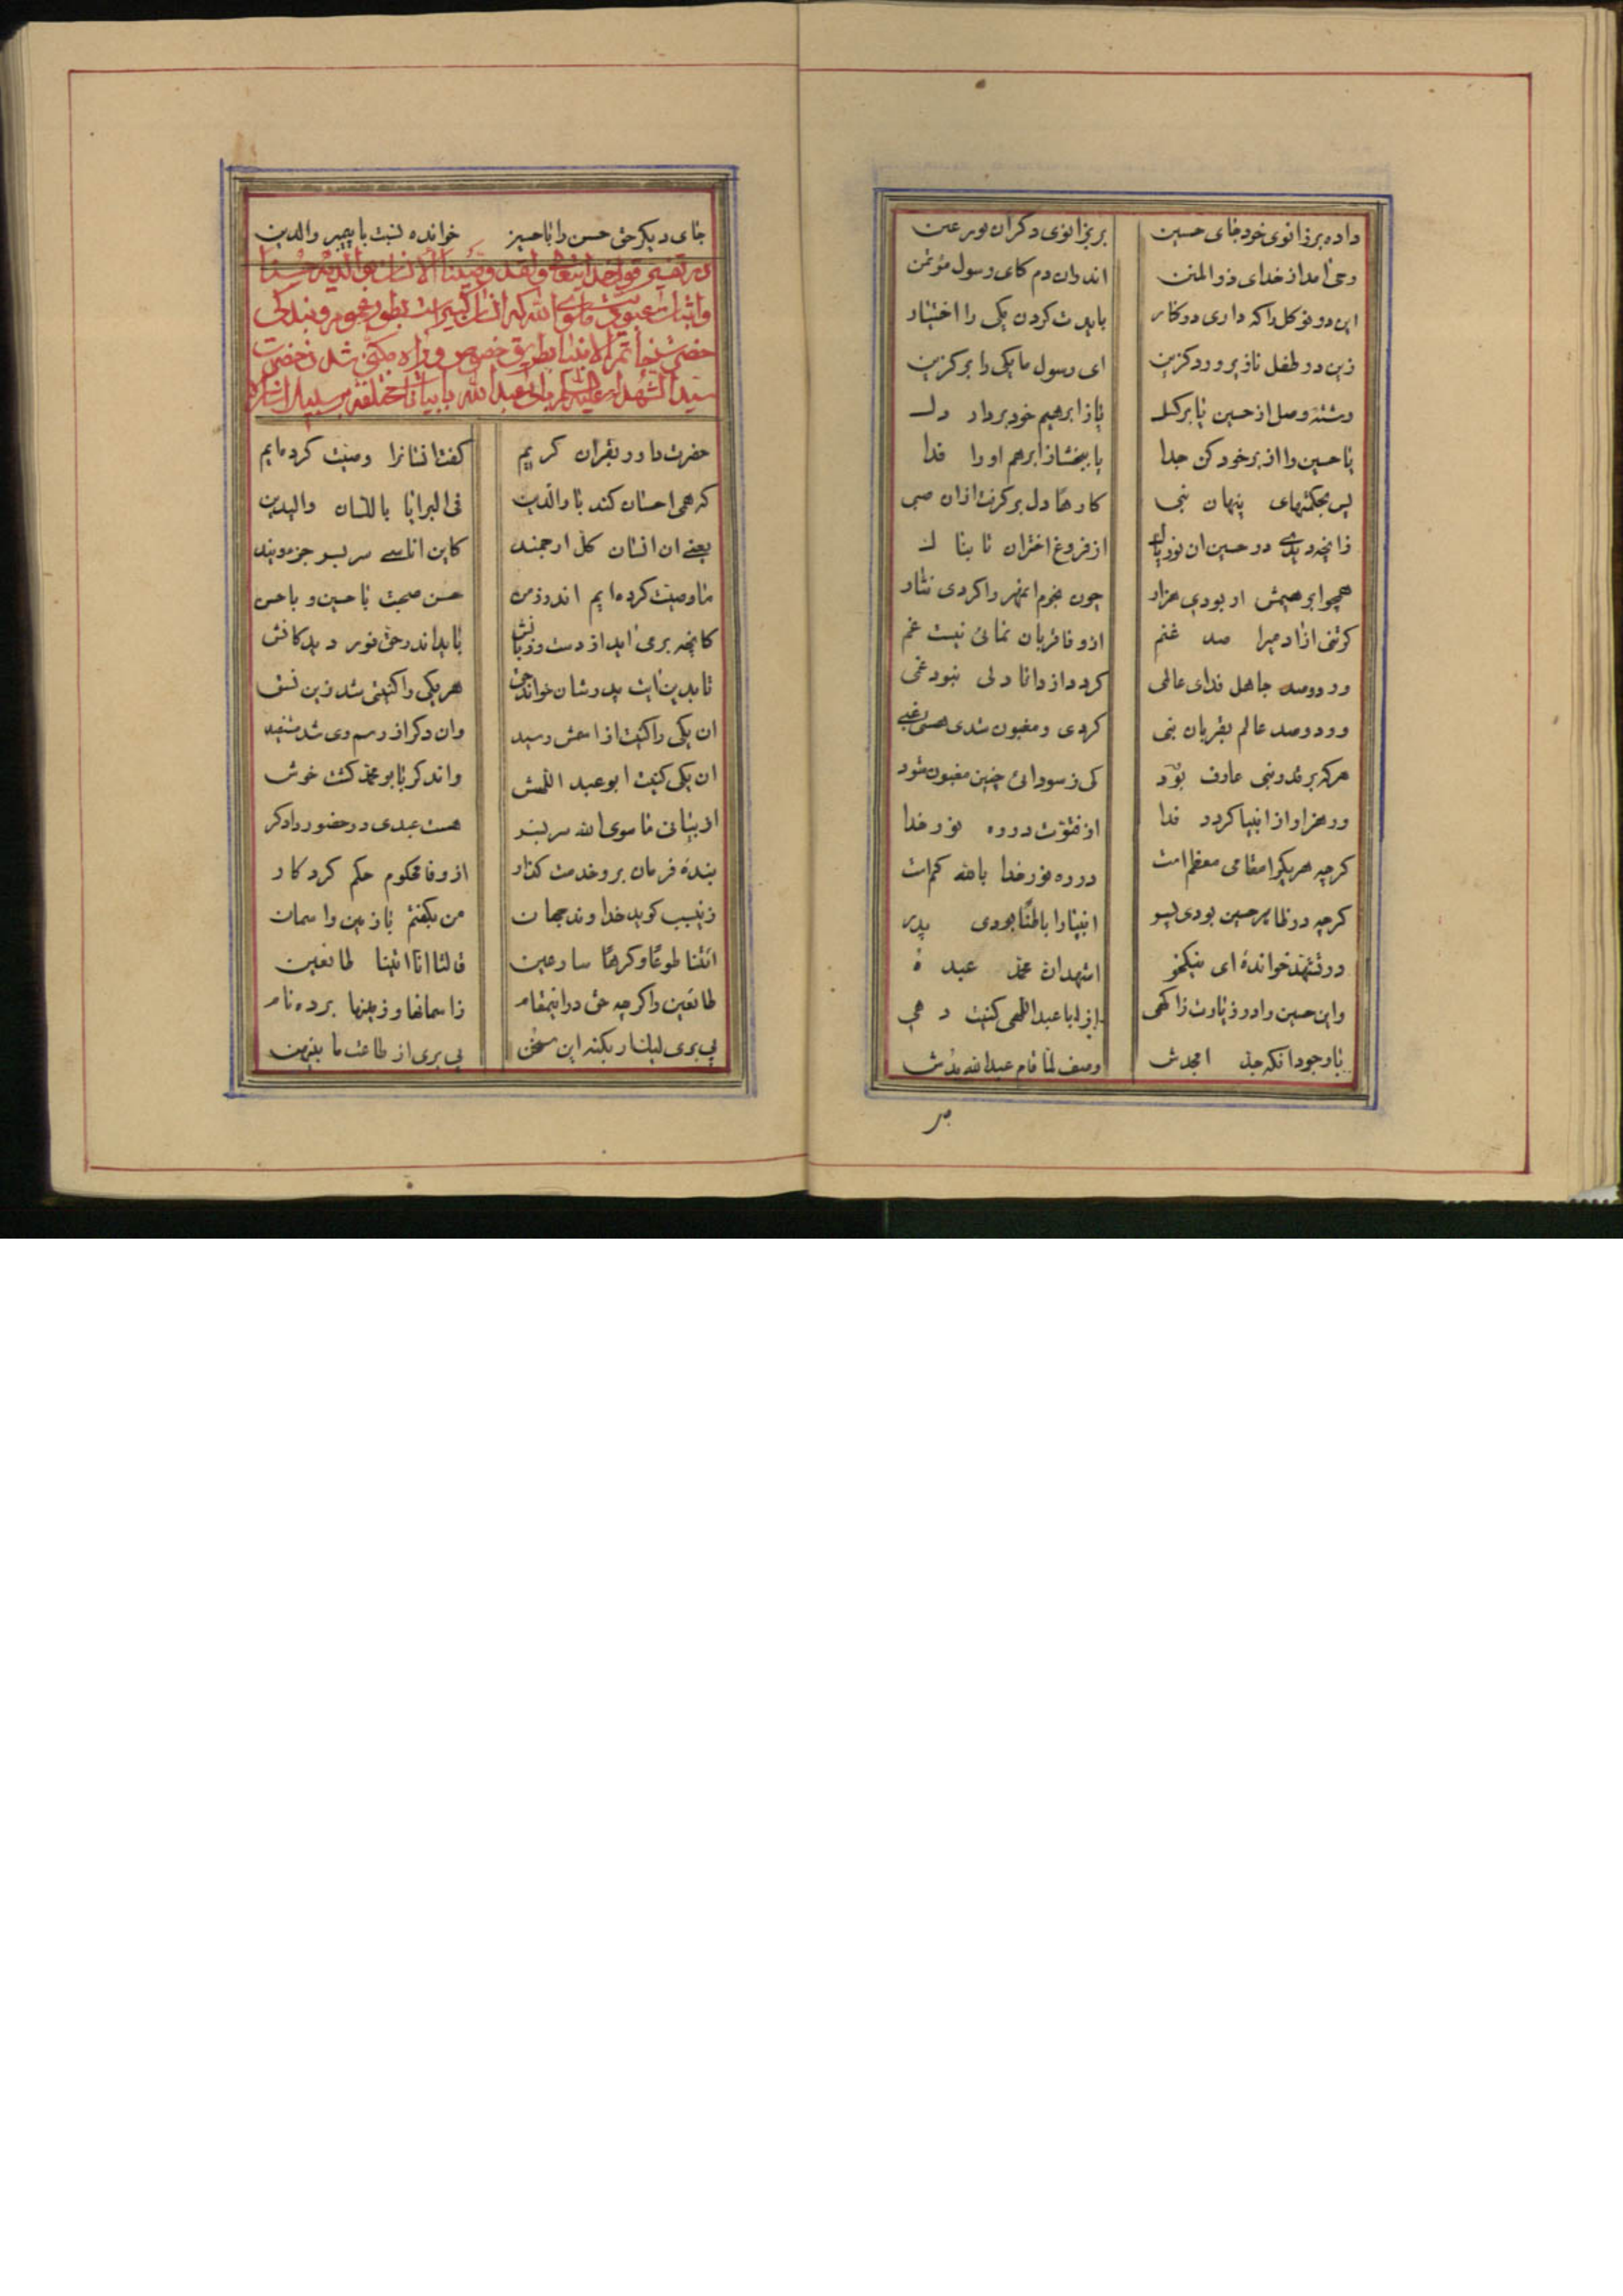 داده بر زانوی خود جای حسین بر بزانوی دکر ان نور عین
وحی امد از خدای ذو المنن اندران دم کای رسول مؤتمن
این دو نو کل را که داری در کنار بایدت کردن یکی را اختیار
زین دو طفل ناز پرورد کزین ای رسول ما یکی را بر کزین
رشته وصل از حسین یا بر کسل یا ز ابرهیم خود بردار دل
یا حسین را از بر خود کن جدا یا ببخشا ز ابرهم او را فدا
پس بحکمتهای پنهان نبی کارها دل بر کرفت از ان صبی
زانچه دیدی در حسین ان نور پاک از فروغ اختران تابناک
همچو ابرهیمش ار بودی هزار چون نجوم انمهر را کردی نثار
کر تنی ازاد میرا صد غنم از وفا قربان نمائی نیست غم
ور دو صد جاهل فدای عالمی کردد از دانا دلی نبود غمی
ور دو صد عالم بقربان نبی کردی و مغبون شدی هستی غبی
هر که بر قدر نبی عارف بود کی ز سودائی چنین مغبون شود
ور هزاران از انبیا کردد فدا از فتوت در ره نور خدا
کرچه هر یکرا مقامی معظم است در ره نور خدا بالله کم است
کرچه در ظاهر حسین بودی پسر انبیا را باطنا بودی پدر
در تشهد خوانده ای نیکخو اشهد ان محمد عبده
و این حسین را در زیارت ز اکهی از ابا عبد اللهی کنیت دهی
با وجود انکه جد امجدش وصف لما قام عبد الله بدش
بر
جای دیکر حق حسن را با حسین خوانده نسبت با پیمبر والدین
در تفسیر قول خدایتعالی و لقد وصینا الانسان بوالدیه حسنا
و اثبات عبودیت ما سوی الله که انسان کبیر است بطور عموم و بندکی
حضرت ختم الانبیا بطریق خصوص و از اه مکنی شدن حضرت
سید الشهدا علیه السلم بابی عبد الله با بیانات مختلفه بر سبیل اشاره
حضرت داور بقران کریم کفت انسانرا وصیت کرده ایم
که همی احسان کند با والدین فی البرایا باللسان والیدین
یعنی ان انسان کل ارجمند کاین اناسی سر بسر جزء ویند
ما وصیت کرده ایم اندر زمن حسن صحبت با حسین و با حسن
کانچه بر می اید از دست و زبانش باید اندر حق نور دیدکانش
تا بدین ایت پدرشان خواند حق هر یکی را کنیتی شد زین نسق
ان یکی را کنیت از اسمش رسید وان دکر از رسم وی شد مستفید
ان یکی کنیت ابو عبد اللهش واندکر با بو محمد کشت خوش
از بیانی ما سوی الله سر بسر هست عبدی در حضور دادکر
بنده فرمان بر و خدمت کذار از وفا محکوم حکم کردکار
زینسبب کوید خداوند جهان من بکفتم با زمین و اسمان
ائتنا طوعا و کرها سارعین قالتا انا اتینا طائعین
طائعین را کرچه حق در اینمقام ز اسمانها و زمینها برده نام
پی بری لیلنار بکنه این سخن پی بری از طاعت ما